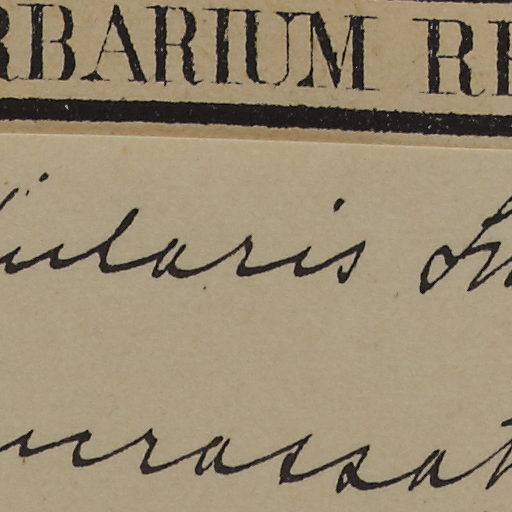 RBARIUM RE
ularis
urassat